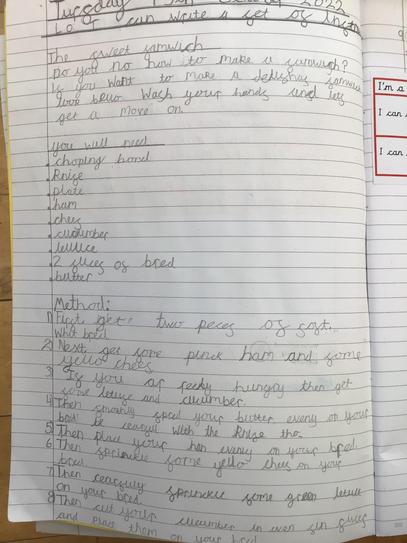 Tuesday 2022
Lo: I can write a set of
The sweet samwich
Do you no how to make a samwich?
If you want to make a delishas samwich
look below Wash your hands and lets
get a move on.
you will need
choping bord
Knife
plate
ham
chees
cucumber
lettuce
2 slices of bred
butter
Method:
1) First get two peces of soft
Whit bred.
2) Next get some pinck ham and some
yello chees
3 If you ar reely hungry then get
some letuce and cucumber.
4 Then smartly spred your butter evenly on your
bred be carful with the knife tho.
5 Then place your ham evenly on your bred.
6 Then sprinckle some yello chees on your
bred.
7 Then cearfuly sprinckle some green letuce
on your bred.
8 Then cut your cucumber in even fin slices
and place them on your bred
I'm a
I can
I can